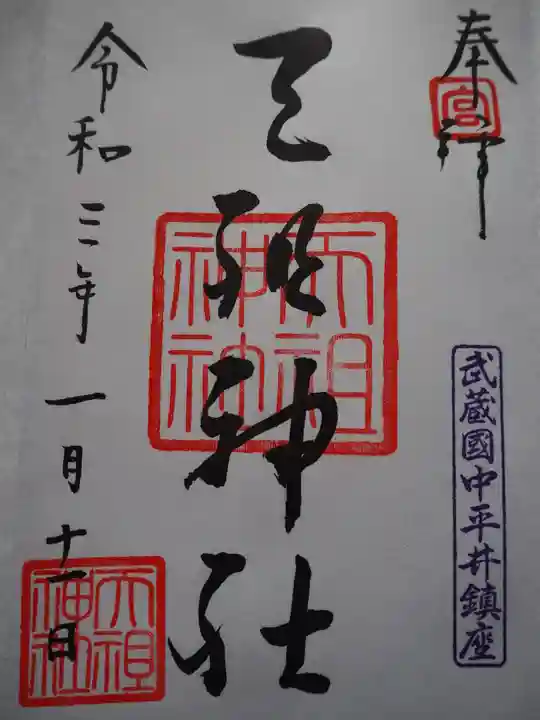 奉拝
宮
武蔵國中平井鎮座
天祖神社
天祖
神社
令和三年一月十一日
天祖
神社